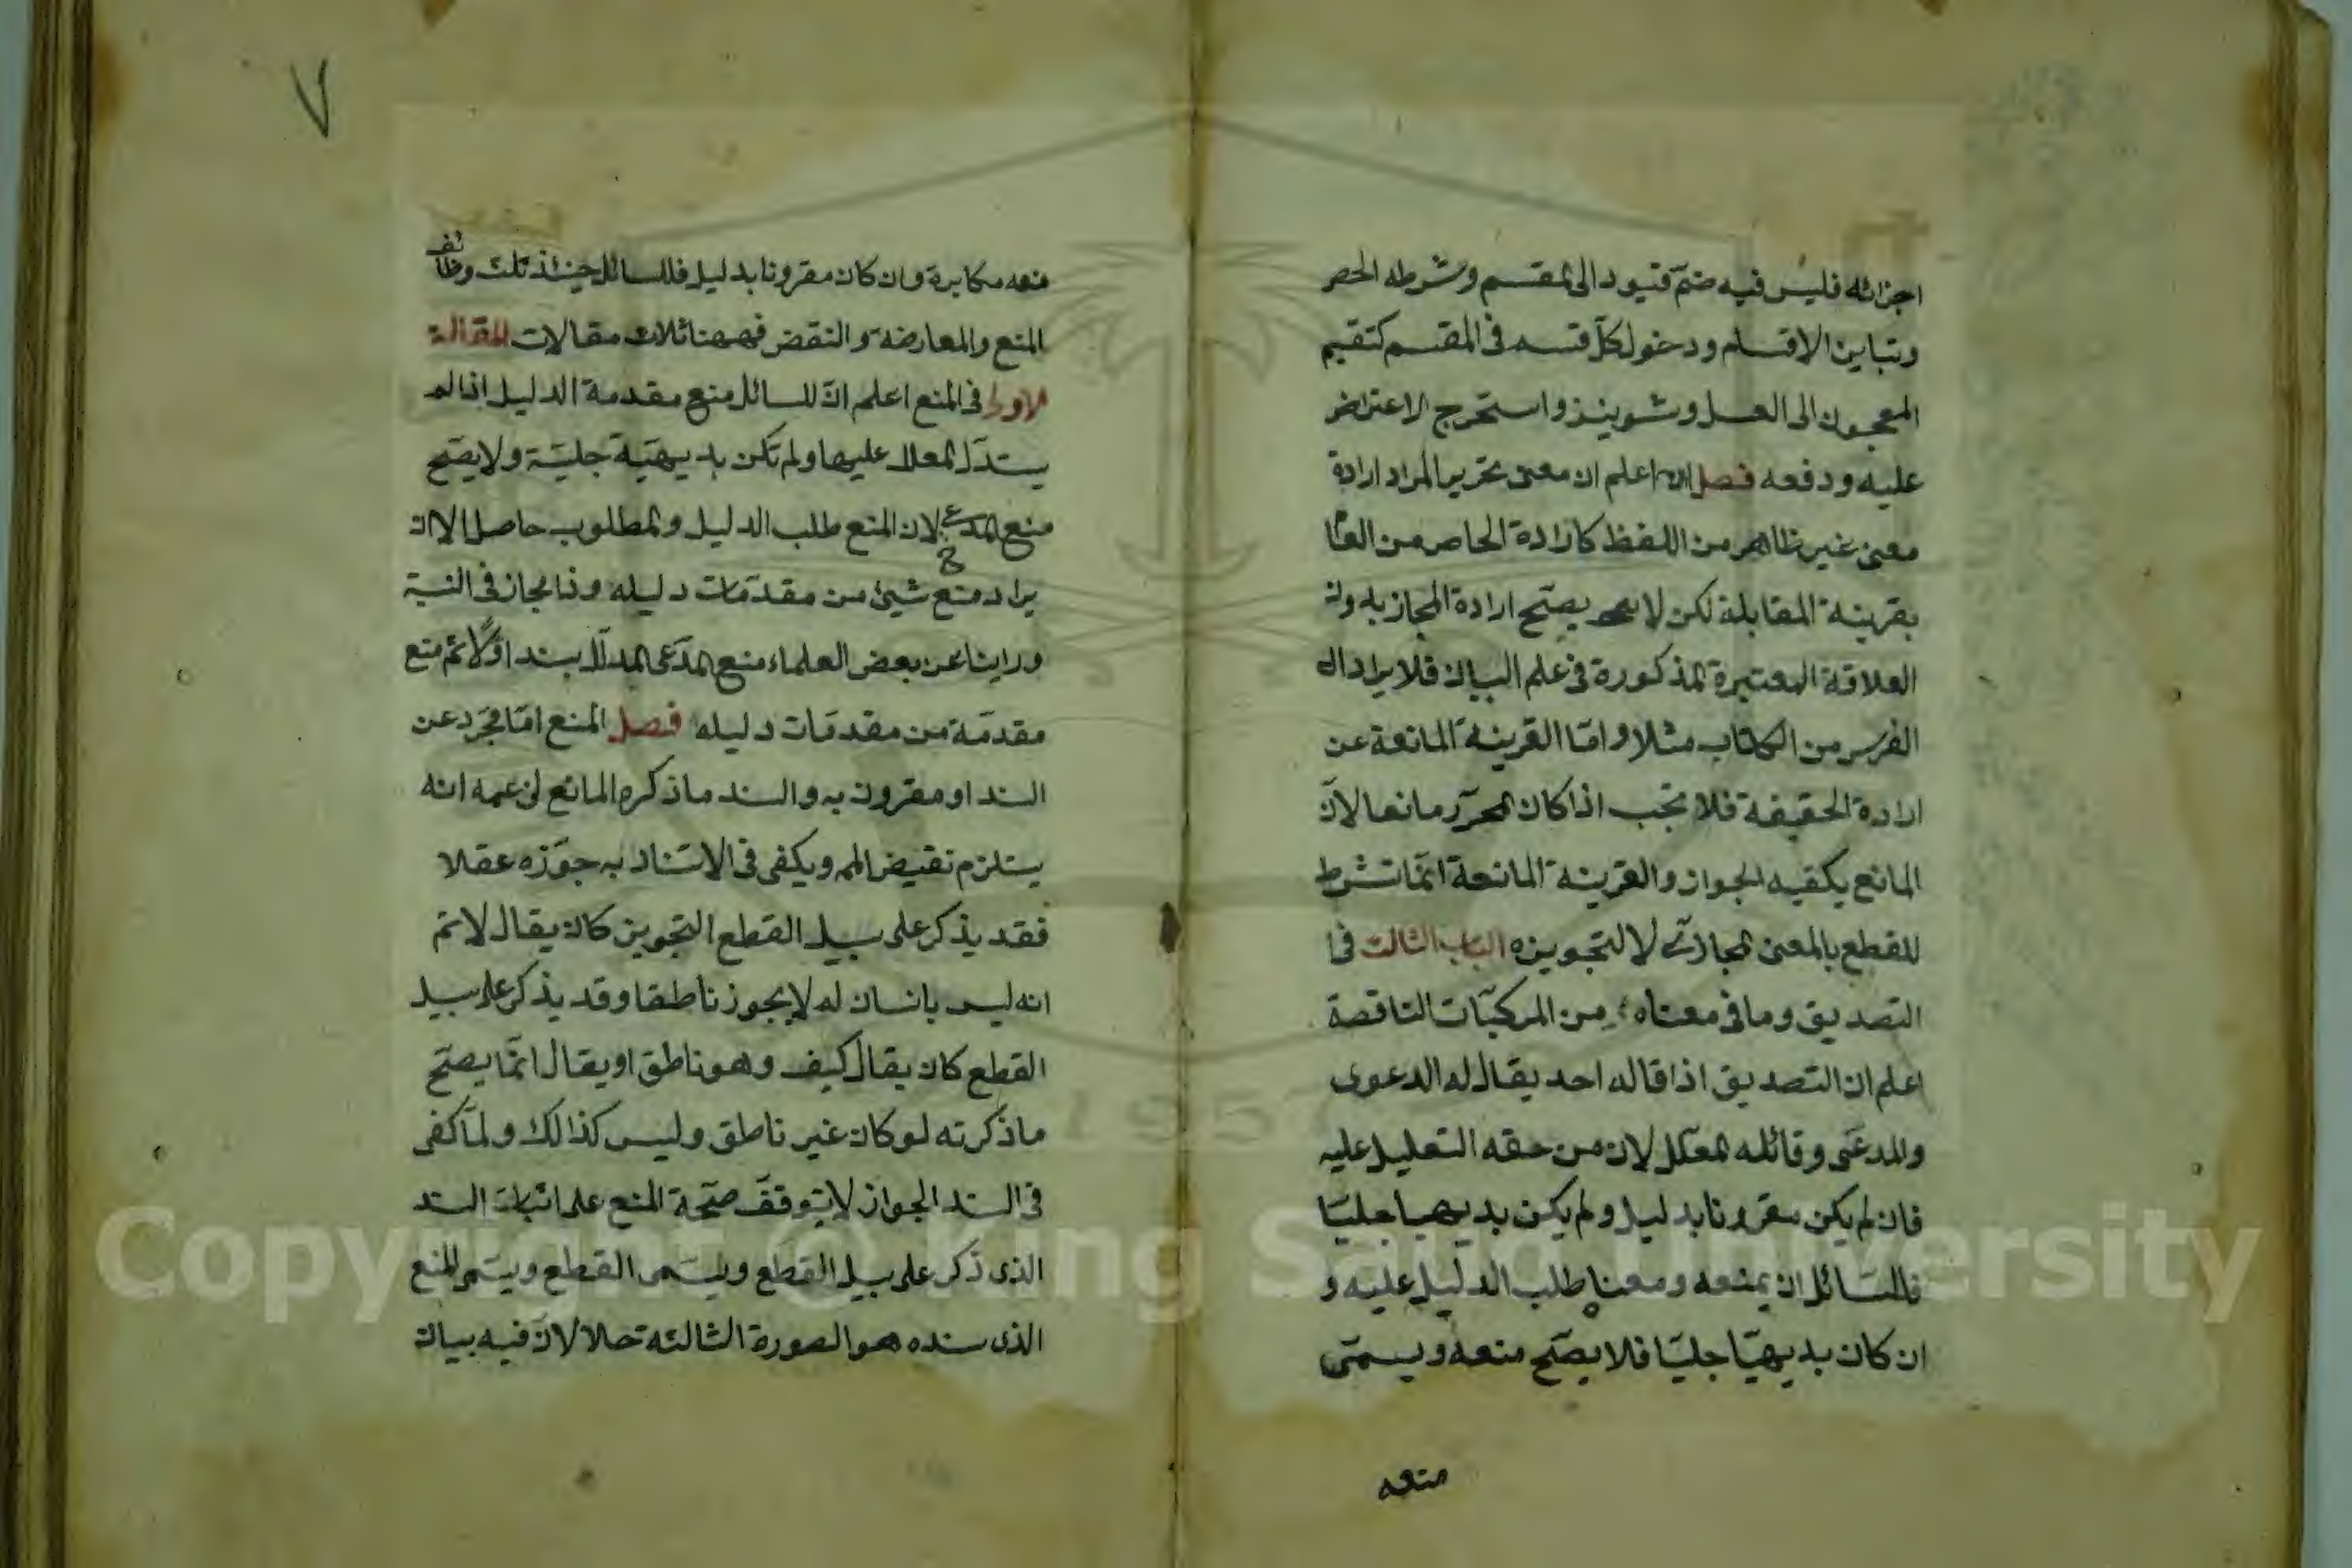 اجزائه فليس فيه ضمّ قيود الى المقسم وشرطه الحصر
وتباين الاقسام ودخول كلّ قسم فى المقسم كتقسيم
المعجون الى العسل وشوينز واستخرج الاعتراض
عليه ودفعه فصل اعلم ان معنى تحرير المراد ارادة
معنى غير ظاهر من اللفظ كارادة الخاص من العام
بقرينة المقابلة لكن لا يصّح ارادة المجاز بدون
العلاقة المعتبرة المذكورة فى علم البيان فلا يراد
الفرس من الكتاب مثلا وامّا القرينة المانعة عن
ارادة الحقيقة فلا تجب اذا كان المحرّر مانعا لانّ
المانع يكفيه الجواز والقرينة المانعة انّما تشترط
للقطع بالمعنى المجازىّ لا لتجويزه الباب الثالث فى
التصديق وما فى معناه من المركبّات الناقصة
اعلم ان التصديق اذا قاله احد يقال له الدعوى
والمدعى وقائله المعلّل لان من حقه التعليل عليه
فان لم يكن مقرونا بدليل ولم يكن بديهيا جليّا
فللسّائل ان يمنعه ومعناه طلب الدليل عليه و
ان كان بديهيّا جليّا فلا يصّح منعه ويسمّى
منعه
٧
منعه مكابرة وان كان مقرونا بدليل فللسائل حينئذ ثلث وظائف
المنع والمعارضة والنقض فههنا ثلاث مقالات المقالة
الاولى فى المنع اعلم انّ للسائل منع مقدمة الدليل اذا لم
يستدلّ المعلل عليها ولم تكن بديهيّة جليّة ولا يصّح
منع المدعى لان المنع طلب الدليل والمطلوب حاصل الا ان
يراد منع شيئ من مقدّمات دليله وذا مجاز فى النسبة
وراينا عن بعض العلماء منع المدّعى المدلّل بسند اوّلا ثم منع
مقدّمة من مقدمّات دليله فصل المنع امّا مجرّد عن
السند او مقرون به والسند ما ذكره المانع لزعمه انه
يستلزم نقيض المم ويكفى فى الاستناد به جوّزه عقلا
فقد يذكر على سبيل القطع التجويز كان يقال لا نم
انه ليس بانسان له لا يجوز ناطقا وقد يذكر على سبيل
القطع كان يقال كيف وهو ناطق او يقال انّما يصّح
ما ذكرته لو كان غير ناطق وليس كذالك ولمّا كفى
فى السند الجواز لا يتوقفّ صحّة المنع على اثبات السند
الذى ذكر على سبيل القطع ويسمى القطع ويسّمى المنع
الذى سنده هو الصورة الثالثة حلا لانّ فيه بيان